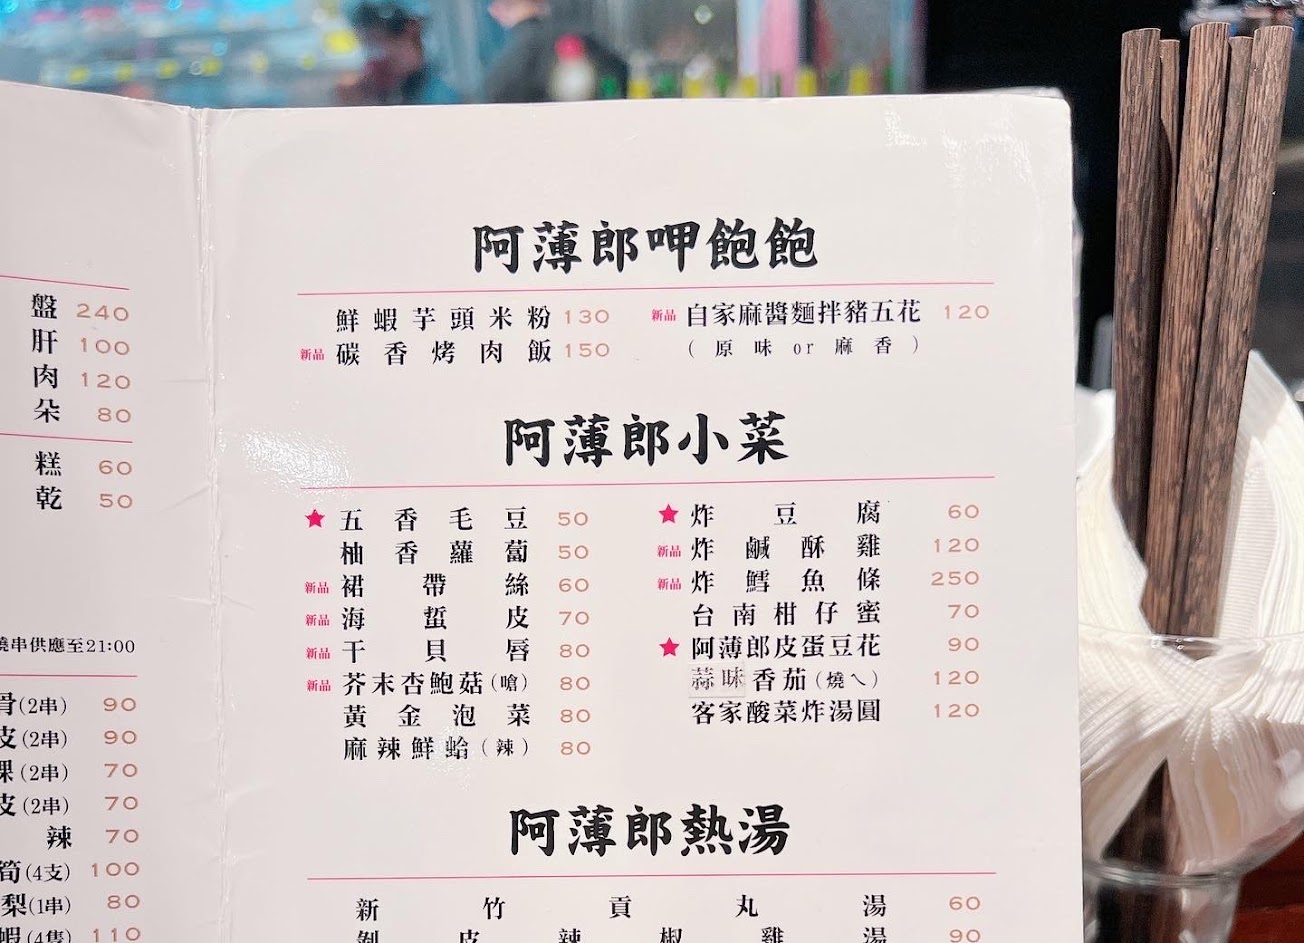 盤 240
肝 100
肉 120
朵 80
糕 60
乾 50
燒串供應至21:00
骨(2串) 90
皮(2串) 90
(2串) 70
皮(2串) 70
辣 70
筍(4支) 100
梨(1串) 80
蝦(4隻) 110
阿薄郎呷飽飽
鮮蝦芋頭米粉 130
新品 碳香烤肉飯 150
新品 自家麻醬麵拌豬五花 120
(原味 or 麻香)
阿薄郎小菜
★ 五香毛豆 50
柚香蘿蔔 50
新品 裙帶絲 60
新品 海蜇皮 70
新品 干貝唇 80
新品 芥末杏鮑菇(嗆) 80
黃金泡菜 80
麻辣鮮蛤(辣) 80
★ 炸豆腐 60
新品 炸鹹酥雞 120
新品 炸鱈魚條 250
台南柑仔蜜 70
★ 阿薄郎皮蛋豆花 90
蒜味香茄(燒ㄟ) 120
客家酸菜炸湯圓 120
阿薄郎熱湯
新竹貢丸湯 60
剝皮辣椒雞湯 90